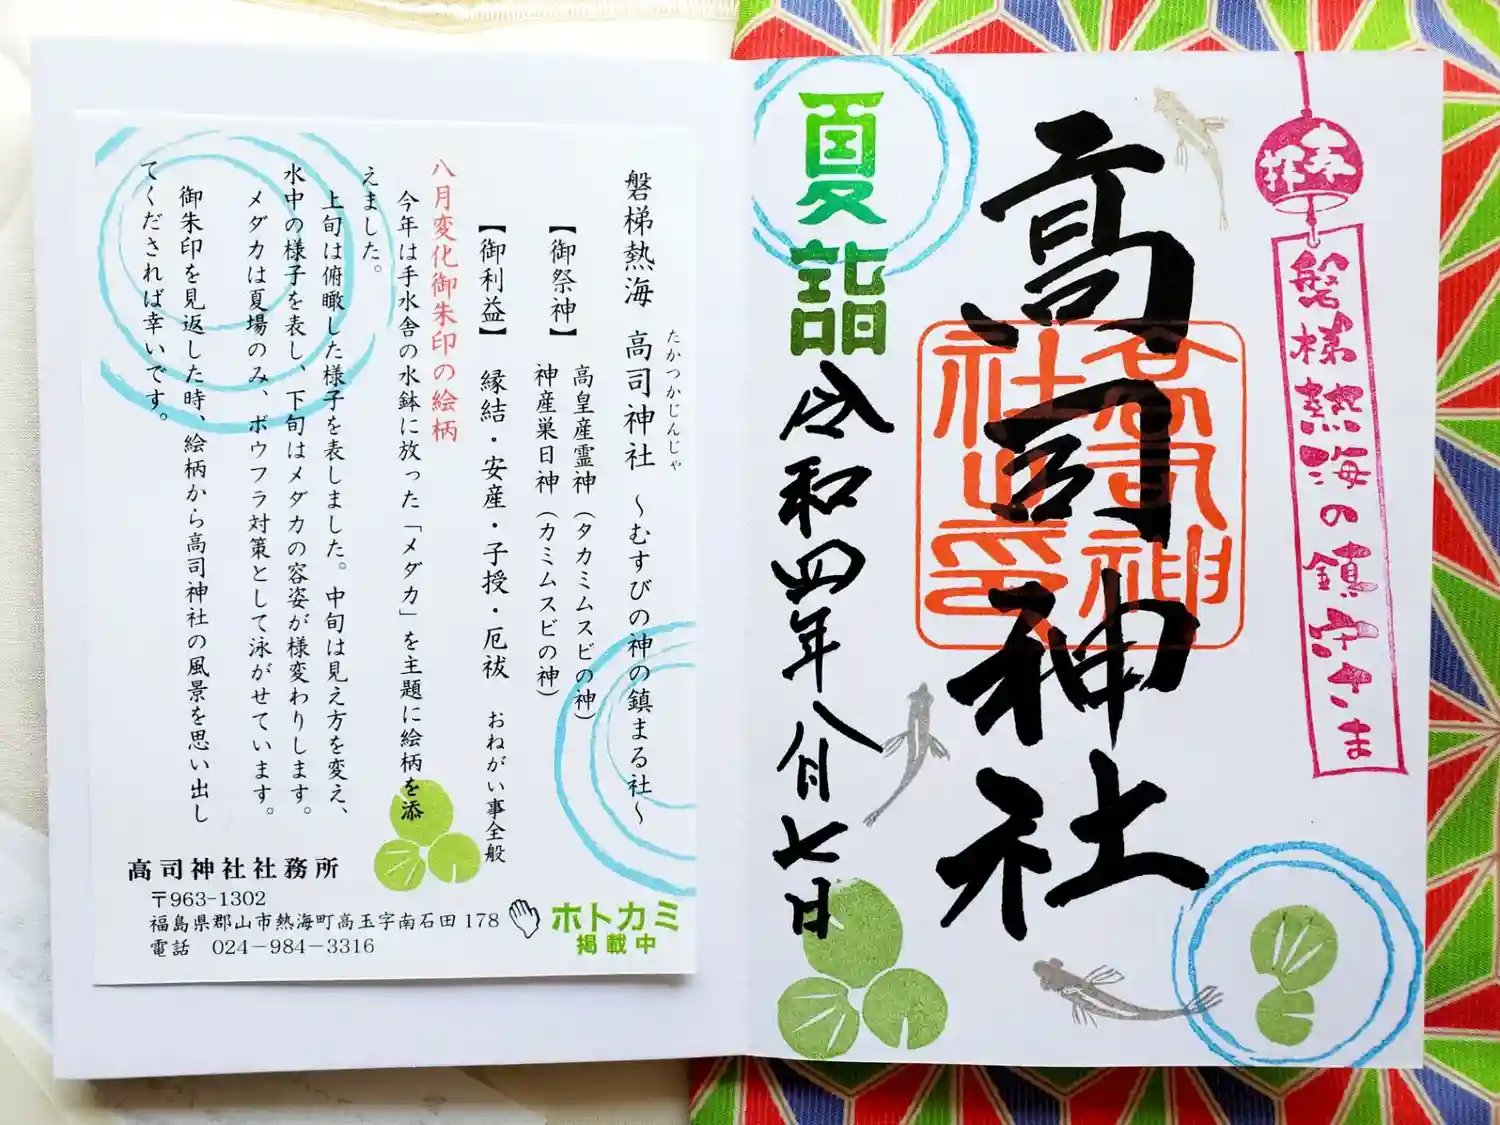 奉拝
磐梯熱海の鎮守さま
高司神社
高司神社之印
夏詣
令和四年八月七日
磐梯熱海 高司神社 ～むすびの神の鎮まる社～
たかつかじんじゃ
【御祭神】 高皇産霊神（タカミムスビの神）
神産巣日神（カミムスビの神）
【御利益】 縁結・安産・子授・厄祓 おねがい事全般
八月変化御朱印の絵柄
今年は手水舎の水鉢に放った「メダカ」を主題に絵柄を添
えました。
上旬は俯瞰した様子を表しました。中旬は見え方を変え、
水中の様子を表し、下旬はメダカの容姿が様変わりします。
メダカは夏場のみ、ボウフラ対策として泳がせています。
御朱印を見返した時、絵柄から高司神社の風景を思い出し
てくだされば幸いです。
高司神社社務所
〒963-1302
福島県郡山市熱海町高玉字南石田178
電話 024－984－3316
ホトカミ
掲載中